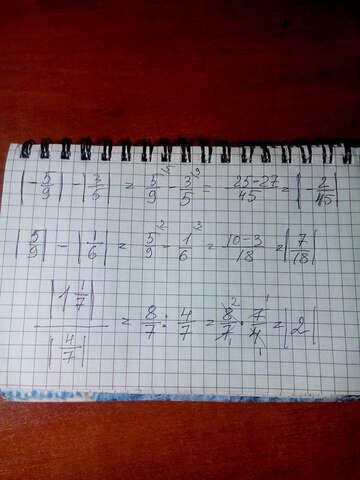 |-5/9| - |3/5| = 5/9 \5 - 3/5 \9 = 25-27/45 = |-2/45|
|5/9| - |1/6| = 5/9 \2 - 1/6 \3 = 10-3/18 = |7/18|
|1 1/7| / |4/7| = 8/7 : 4/7 = 8/7 · 7/4 = |2|